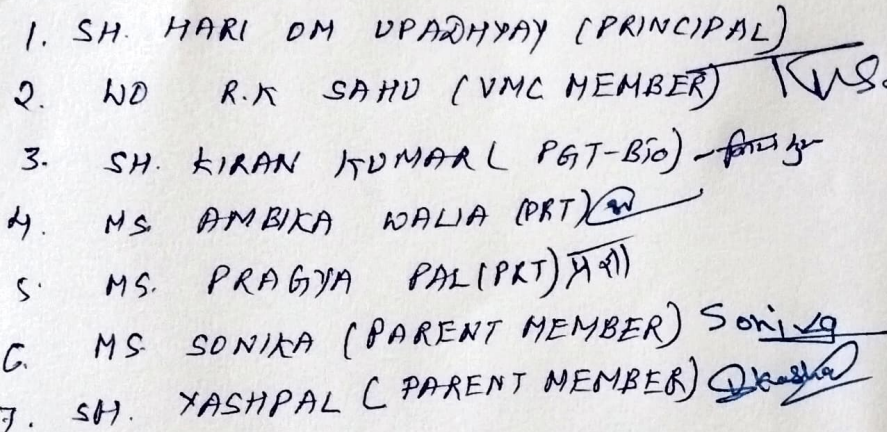 1. SH. HARI OM UPADHYAY (PRINCIPAL)
2. WO R.K SAHU (VMC MEMBER)
3. SH. KIRAN KUMAR ( PGT-Bio) -
4. MS. AMBIKA WALIA (PRT)
5. MS. PRAGYA PAL (PRT)
6. MS SONIKA (PARENT MEMBER)
7. SH. YASHPAL ( PARENT MEMBER)